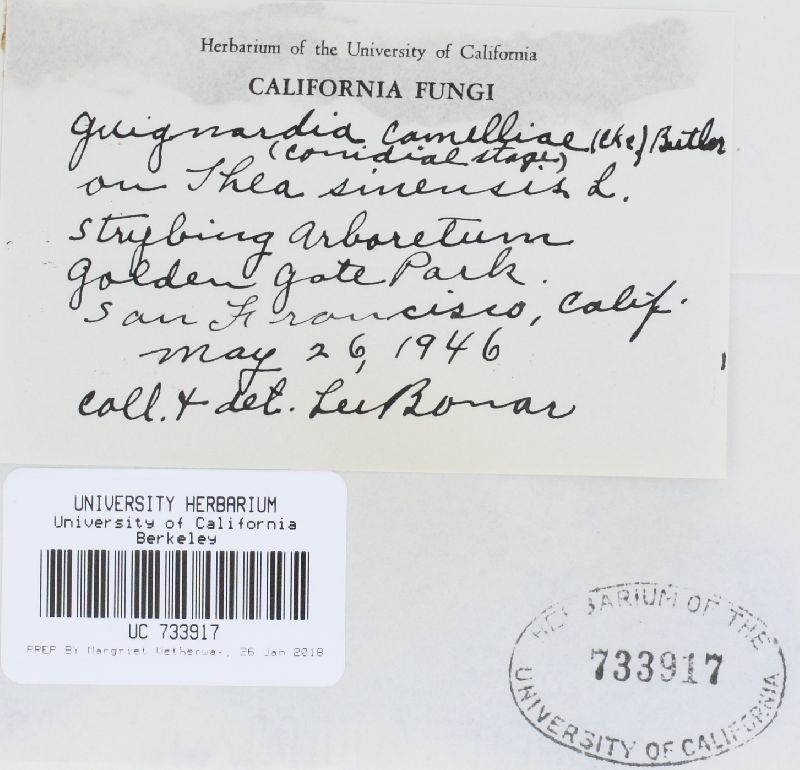 Herbarium of the University of California
CALIFORNIA FUNGI
Guignardia camelliae (Cke) Butler
(conidial stage)
on Thea sinensis L.
Strybing Arboretum
Golden Gate Park.
San Francisco, Calif.
May 26, 1946
coll. & det. Lee Bonar
UNIVERSITY HERBARIUM
University of California
Berkeley
UC 733917
PREP BY Margriet Wetherwax, 26 Jan 2018
HERBARIUM OF THE
733917
UNIVERSITY OF CALIFORNIA